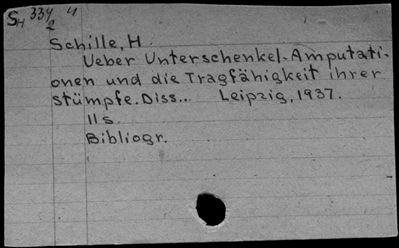 SH 334/2 4
Schille, H.
Ueber Unterschenkel-Amputati-
onen und die Tragfähigkeit ihrer
Stümpfe. Diss... Leipzig, 1937.
11 s.
Bibliogr.